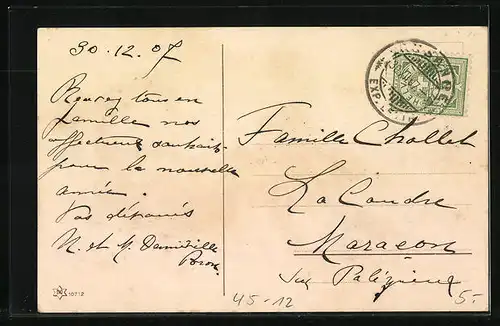 30.12.07
Recevez tous en
famille nos
affectueux souhaits
pour la nouvelle
année.
Vos dépanés
N. et M. Damiville
Oron
10712
LAUSANNE
EXP. LET
Famille Chollet
La Coudre
Maracon
sur Palézieux
45-12
5.-